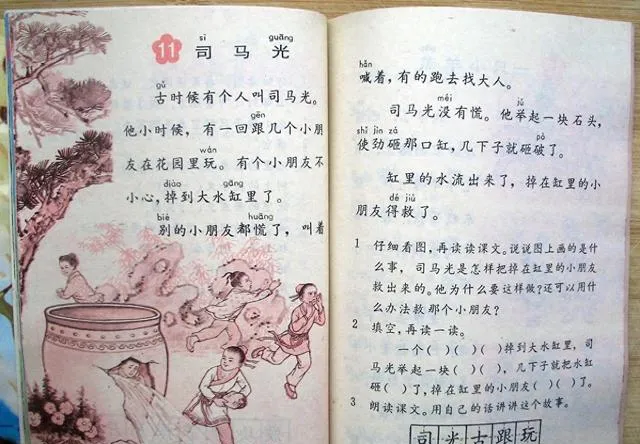 sī guāng
11 司马光
gǔ
古时候有个人叫司马光。
gēn
他小时候，有一回跟几个小朋
wán
友在花园里玩。有个小朋友不
diào gāng
小心，掉到大水缸里了。
bié huāng
别的小朋友都慌了，叫着
hǎn
喊着，有的跑去找大人。
méi jǔ
司马光没有慌。他举起一块石头，
shǐ jìn zá pò
使劲砸那口缸，几下子就砸破了。
缸里的水流出来了，掉在缸里的小
dé jiù
朋友得救了。
1 仔细看图，再读读课文。说说图上画的是什
么事，司马光是怎样把掉在缸里的小朋友
救出来的。他为什么要这样做？还可以用什
么办法救那个小朋友？
2 填空，再读一读。
一个( )( )( )掉到大水缸里，司
马光举起一块( )( )，几下子就把水缸
砸( )了，掉在缸里的小朋友( )( )了。
3 朗读课文。用自己的话讲讲这个故事。
司光古跟玩